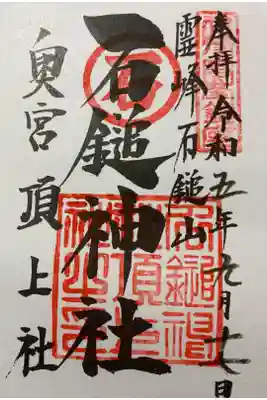 奉拝 令和五年九月十 日
霊峰石鎚山
石鎚神社
奥宮頂上社
石鎚神
社頂上
社之印